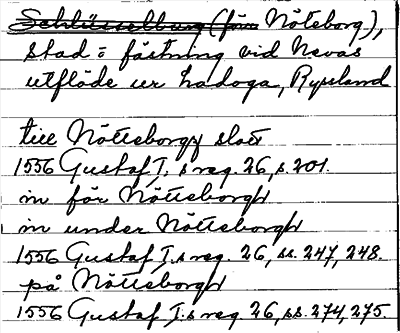 Schlüsselburg (förr Nöteborg),
stad o fästning vid Nevas
utflöde ur Ladoga, Ryssland
till Nötteborgx slott
1556 Gustaf I. s reg. 26, s. 201.
in för Nötteborgh
in under Nötteborgh
1556 Gustaf I. s reg. 26, ss. 247, 248.
på Nötteborgh
1556 Gustaf I. s reg. 26, ss. 274, 275.